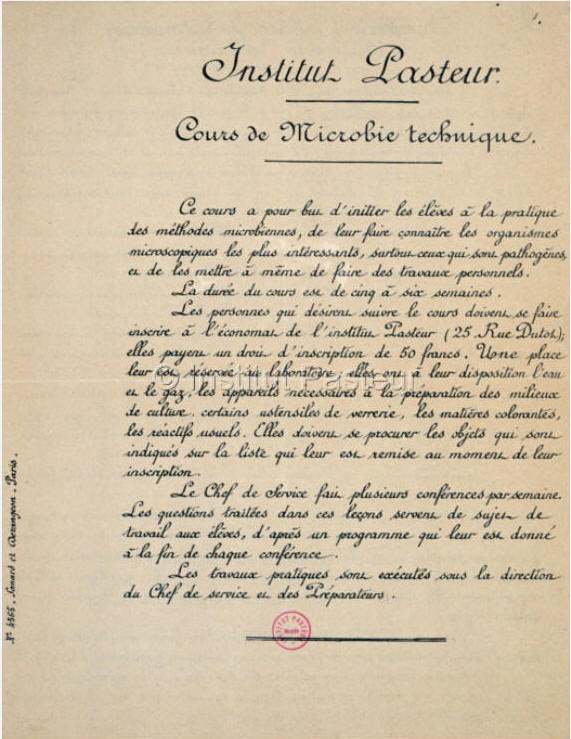 1.
Institut Pasteur.
Cours de Microbie technique.
Ce cours a pour but d'initier les élèves à la pratique
des méthodes microbiennes, de leur faire connaître les organismes
microscopiques les plus intéressants, surtout ceux qui sont pathogènes,
et de les mettre à même de faire des travaux personnels.
La durée du cours est de cinq à six semaines.
Les personnes qui désirent suivre le cours doivent se faire
inscrire à l'économat de l'institut Pasteur (25 Rue Dutot);
elles payent un droit d'inscription de 50 francs. Une place
leur est réservée au laboratoire, elles ont à leur disposition l'eau
et le gaz, les appareils nécessaires à la préparation des milieux
de culture, certains ustensiles de verrerie, les matières colorantes,
les réactifs usuels. Elles doivent se procurer les objets qui sont
indiqués sur la liste qui leur est remise au moment de leur
inscription.
Le Chef de Service fait plusieurs conférences par semaine.
Les questions traitées dans ces leçons servent de sujet de
travail aux élèves, d'après un programme qui leur est donné
à la fin de chaque conférence.
Les travaux pratiques sont exécutés sous la direction
du Chef de service et des Préparateurs.
© Institut Pasteur
INSTITUT PASTEUR
Paris.